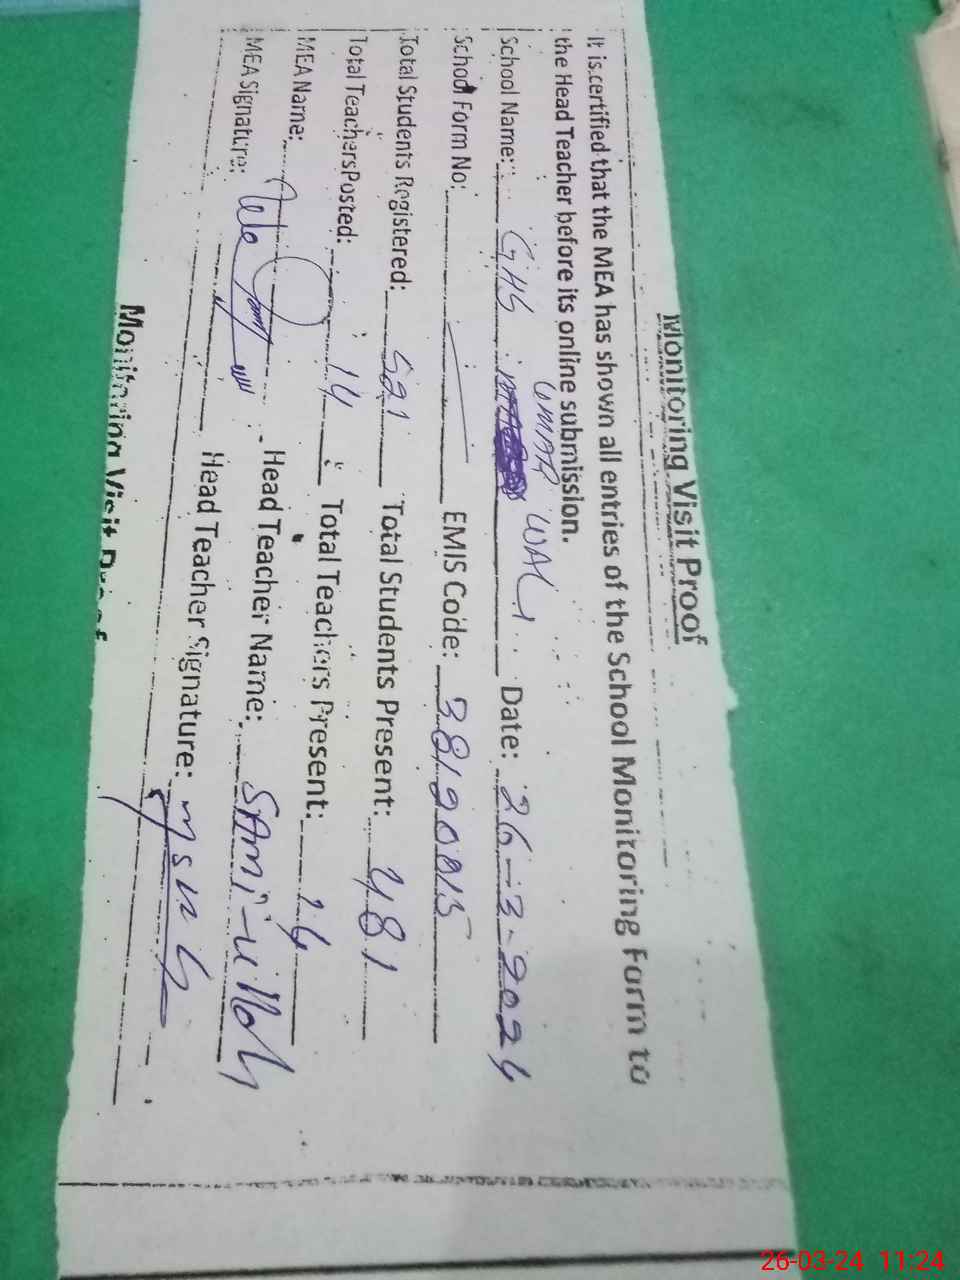 Monitoring Visit Proof
It is certified that the MEA has shown all entries of the School Monitoring Form to
the Head Teacher before its online submission.
School Name: GHS UMAR WALI Date: 26-3-2024
School Form No: EMIS Code: 38120015
Total Students Registered: 521 Total Students Present: 481
Total Teachers Posted: 14 Total Teachers Present: 14
MEA Name: Head Teacher Name: SAmi-ullah
MEA Signature: Head Teacher Signature:
Monitoring Visit Proof
26-03-24 11:24